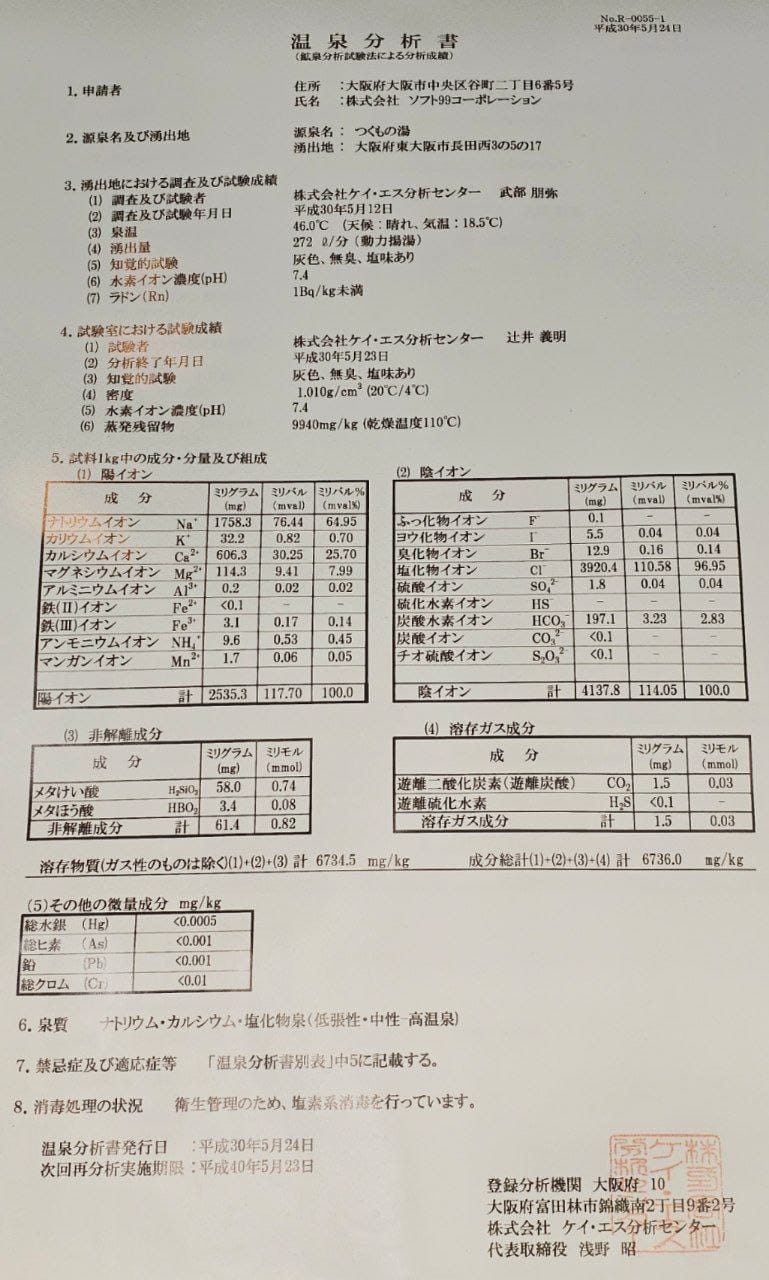 No.R-0055-1
平成30年5月24日
温泉分析書
(鉱泉分析試験法による分析成績)
1. 申請者 住所 :大阪府大阪市中央区谷町二丁目6番5号
氏名 :株式会社 ソフト99コーポレーション
2. 源泉名及び湧出地 源泉名: つくもの湯
湧出地: 大阪府東大阪市長田西3の5の17
3. 湧出地における調査及び試験成績
(1) 調査及び試験者 株式会社ケイ・エス分析センター 武部 朋弥
(2) 調査及び試験年月日 平成30年5月12日
(3) 泉温 46.0℃ (天候:晴れ、気温:18.5℃)
(4) 湧出量 272 ℓ/分 (動力揚湯)
(5) 知覚的試験 灰色、無臭、塩味あり
(6) 水素イオン濃度(pH) 7.4
(7) ラドン(Rn) 1Bq/kg未満
4. 試験室における試験成績
(1) 試験者 株式会社ケイ・エス分析センター 辻井 義明
(2) 分析終了年月日 平成30年5月23日
(3) 知覚的試験 灰色、無臭、塩味あり
(4) 密度 1.010g/cm³ (20℃/4℃)
(5) 水素イオン濃度(pH) 7.4
(6) 蒸発残留物 9940mg/kg (乾燥温度110℃)
5. 試料1kg中の成分・分量及び組成
(1) 陽イオン
成 分 ミリグラム (mg) ミリバル (mval) ミリバル% (mval%)
ナトリウムイオン Na⁺ 1758.3 76.44 64.95
カリウムイオン K⁺ 32.2 0.82 0.70
カルシウムイオン Ca²⁺ 606.3 30.25 25.70
マグネシウムイオン Mg²⁺ 114.3 9.41 7.99
アルミニウムイオン Al³⁺ 0.2 0.02 0.02
鉄(II)イオン Fe²⁺ <0.1 − −
鉄(III)イオン Fe³⁺ 3.1 0.17 0.14
アンモニウムイオン NH₄⁺ 9.6 0.53 0.45
マンガンイオン Mn²⁺ 1.7 0.06 0.05
陽イオン 計 2535.3 117.70 100.0
(2) 陰イオン
成 分 ミリグラム (mg) ミリバル (mval) ミリバル% (mval%)
ふっ化物イオン F⁻ 0.1 − −
ヨウ化物イオン I⁻ 5.5 0.04 0.04
臭化物イオン Br⁻ 12.9 0.16 0.14
塩化物イオン Cl⁻ 3920.4 110.58 96.95
硫酸イオン SO₄²⁻ 1.8 0.04 0.04
硫化水素イオン HS⁻ − − −
炭酸水素イオン HCO₃⁻ 197.1 3.23 2.83
炭酸イオン CO₃²⁻ <0.1 − −
チオ硫酸イオン S₂O₃²⁻ <0.1 − −
陰イオン 計 4137.8 114.05 100.0
(3) 非解離成分
成 分 ミリグラム (mg) ミリモル (mmol)
メタけい酸 H₂SiO₃ 58.0 0.74
メタほう酸 HBO₂ 3.4 0.08
非解離成分 計 61.4 0.82
(4) 溶存ガス成分
成 分 ミリグラム (mg) ミリモル (mmol)
遊離二酸化炭素(遊離炭酸) CO₂ 1.5 0.03
遊離硫化水素 H₂S <0.1 −
溶存ガス成分 計 1.5 0.03
溶存物質(ガス性のものは除く)(1)+(2)+(3) 計 6734.5 mg/kg 成分総計(1)+(2)+(3)+(4) 計 6736.0 mg/kg
(5)その他の微量成分 mg/kg
総水銀 (Hg) <0.0005
総ヒ素 (As) <0.001
鉛 (Pb) <0.001
総クロム (Cr) <0.01
6. 泉質 ナトリウム・カルシウム・塩化物泉(低張性・中性-高温泉)
7. 禁忌症及び適応症等 「温泉分析書別表」中5に記載する。
8. 消毒処理の状況 衛生管理のため、塩素系消毒を行っています。
温泉分析書発行日 :平成30年5月24日
次回再分析実施期限 :平成40年5月23日
登録分析機関 大阪府 10
大阪府富田林市錦織南2丁目9番2号
株式会社 ケイ・エス分析センター
代表取締役 浅野 昭